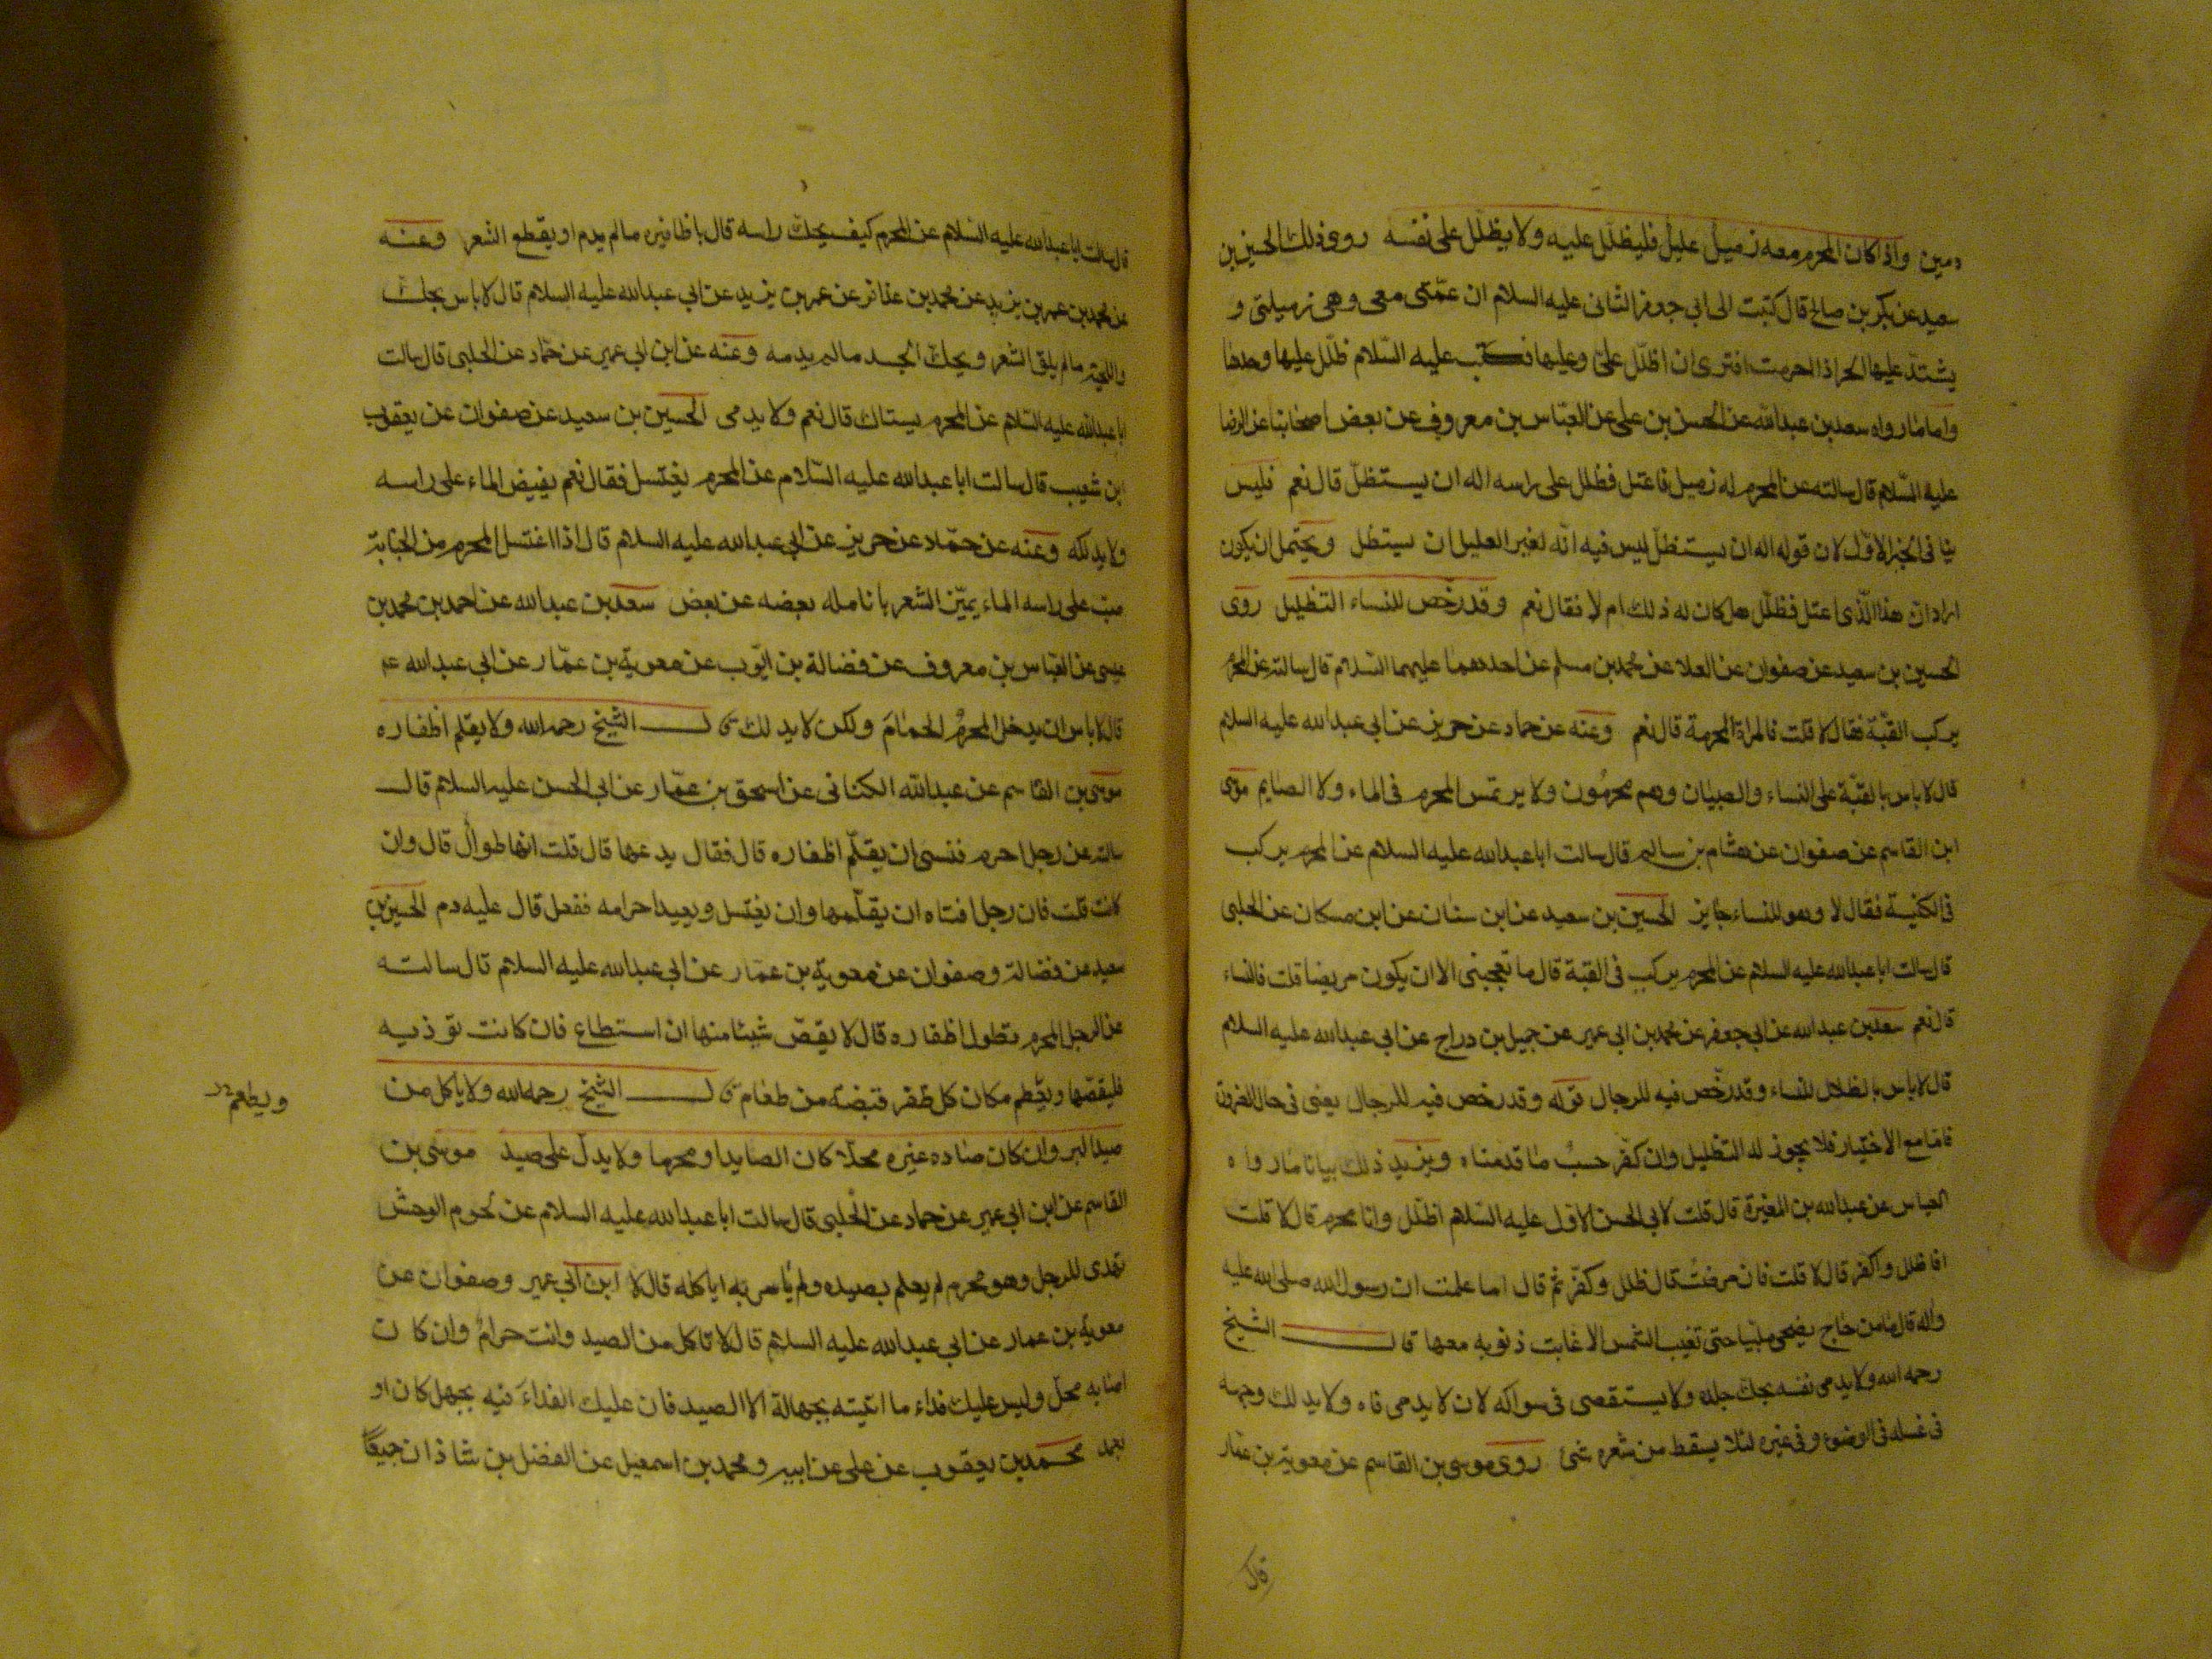 دمين واذا كان المحرم معه زميل عليل فليظلل عليه ولا يظلل على نفسه روى ذلك الحسين بن
سعيد عن بكر بن صالح قال كتبت الى ابى جعفر الثانى عليه السلام ان عمّتى معى وهى زميلتى و
يشتدّ عليها الحر اذا احرمت افترى ان اظلّل علىّ وعليها فكتب عليه السّلام ظلّل عليها وحدها
واما ما رواه سعد بن عبدالله عن الحسن بن على عن العبّاس بن معروف عن بعض اصحابنا عن الرضا
عليه السّلام قال سالته عن المحرم له زميل فاعتل فظلل على راسه اله ان يستظلّ قال نعم فليس
ينافى الخبر الاوّل لان قوله اله ان يستظلّ ليس فيه انّه لغير العليل ان يستظل ويحتمل ان يكون
اراد ان هذا الّذى اعتل فظلّل هل كان له ذلك ام لا فقال نعم وقد رخّص للنساء التظليل روى
الحسين بن سعيد عن صفوان عن العلا عن محمد بن مسلم عن احدهما عليهما السّلام قال سالته عن المحرم
يركب القبّة فقال لا قلت فالمراة المحرمة قال نعم وعنه عن حماد عن حريز عن ابى عبدالله عليه السلام
قال لا باس بالقبّة على النساء والصبيان وهم محرمون ولا يرتمس المحرم فى الماء ولا الصايم موسى
ابن القاسم عن صفوان عن هشام بن سالم قال سالت ابا عبدالله عليه السلام عن المحرم يركب
فى الكنيسة فقال لا وهو للنساء جايز الحسين بن سعيد عن ابن سنان عن ابن مسكان عن الحلبى
قال سالت ابا عبدالله عليه السلام عن المحرم يركب فى القبة قال ما تعجبنى الا ان يكون مريضا قلت فالنساء
قال نعم سعد بن عبدالله عن ابى جعفر عن محمد بن ابى عمير عن جميل بن دراج عن ابى عبدالله عليه السلام
قال لا باس بالظلال للنساء وقد رخّص فيه للرجال قوله وقد رخص فيه للرجال يعنى فى حال الضرورة
فامّا مع الاختيار فلا يجوز له التظليل وان كفّر حسب ما قدمناه ويزيد ذلك بيانا ما رواه
العباس عن عبدالله بن المغيرة قال قلت لابى الحسن الاوّل عليه السّلام اظلّل وانا محرم قال لا قلت
افاظلل واكفر قال لا قلت فان مرضتُ قال ظلل وكفّر ثم قال اما علمت ان رسول الله صلى الله عليه
واله قال ما من حاج يضحى ملبّيا حتى تغيب الشمس الا غابت ذنوبه معها قال الشيخ
رحمه الله ولا يدمى نفسه بحكّ جلده ولا يستقصى فى سواكه لان لا يدمى فاه ولا يدلك وجهه
فى غسله فى الوضوء وفى غيره لئلا يسقط من شعره شئ روى موسى بن القاسم عن معوية بن عمار
قال
قال سالت ابا عبدالله عليه السّلام عن المحرم كيف يحكّ راسه قال باظافيره ما لم يدم او يقطع الشعر وعنه
عن محمد بن عمر بن يزيد عن محمد بن عذافر عن عمر بن يزيد عن ابى عبدالله عليه السلام قال لا باس بحك
واللحية ما لم يلق الشعر ويحكّ الجسد ما لم يدمه وعنه عن ابن ابى عمير عن حمّاد عن الحلبى قال سالت
ابا عبدالله عليه السّلام عن المحرم يستاك قال نعم ولا يدمى الحسين بن سعيد عن صفوان عن يعقوب
ابن شعيب قال سالت ابا عبدالله عليه السّلام عن المحرم يغتسل فقال نعم يفيض الماء على راسه
ولا يدلكه وعنه عن حمّاد عن حريز عن ابى عبدالله عليه السلام قال اذا اغتسل المحرم من الجنابة
صب على راسه الماء يميّز الشعر بانامله بعضه عن بعض سعد بن عبدالله عن احمد بن محمد بن
عيسى عن العبّاس بن معروف عن فضالة بن ايّوب عن معوية بن عمّار عن ابى عبدالله عم
قال لا باس ان يدخل المحرمُ الحمّام ولكن لا يدلك قال الشيخ رحمه الله ولا يقلم اظفاره
موسى بن القاسم عن عبدالله الكنانى عن اسحق بن عمّار عن ابى الحسن عليه السلام قال
سالته عن رجل احرم فنسى ان يقلّم اظفاره قال فقال يدعها قال قلت انها طوال قال وان
كانت قلت فان رجل افتاه ان يقلّمها وان يغتسل ويعيد احرامه ففعل قال عليه دم الحسين بن
سعيد عن فضالة وصفوان عن معوية بن عمّار عن ابى عبدالله عليه السلام قال سالته
عن الرجل المحرم تطول اظفاره قال لا يقصّ شيئا منها ان استطاع فان كانت توذيه
فليقصّها ويطعم مكان كل ظفر قبضة من طعام قال الشيخ رحمه الله ولا ياكل من
ويطعم
صيد البر وان كان صاده غيره محلّا كان الصايد او محرما ولا يدلّ على صيد موسى بن
القاسم عن ابن ابى عمير عن حماد عن الحلبى قال سالت ابا عبدالله عليه السلام عن لحوم الوحش
تهدى للرجل وهو محرم لم يعلم بصيده ولم يامر به اياكله قال لا ابن ابى عمير وصفوان عن
معوية بن عمار عن ابى عبدالله عليه السلام قال لا تاكل من الصيد وانت حرام وان كان
اصابه محلّ وليس عليك فداء ما اتيته بجهالة الا الصيد فان عليك الفداء فيه بجهل كان او
بعمد محمد بن يعقوب عن على عن ابيه ومحمد بن اسمعيل عن الفضل بن شاذان جميعًا